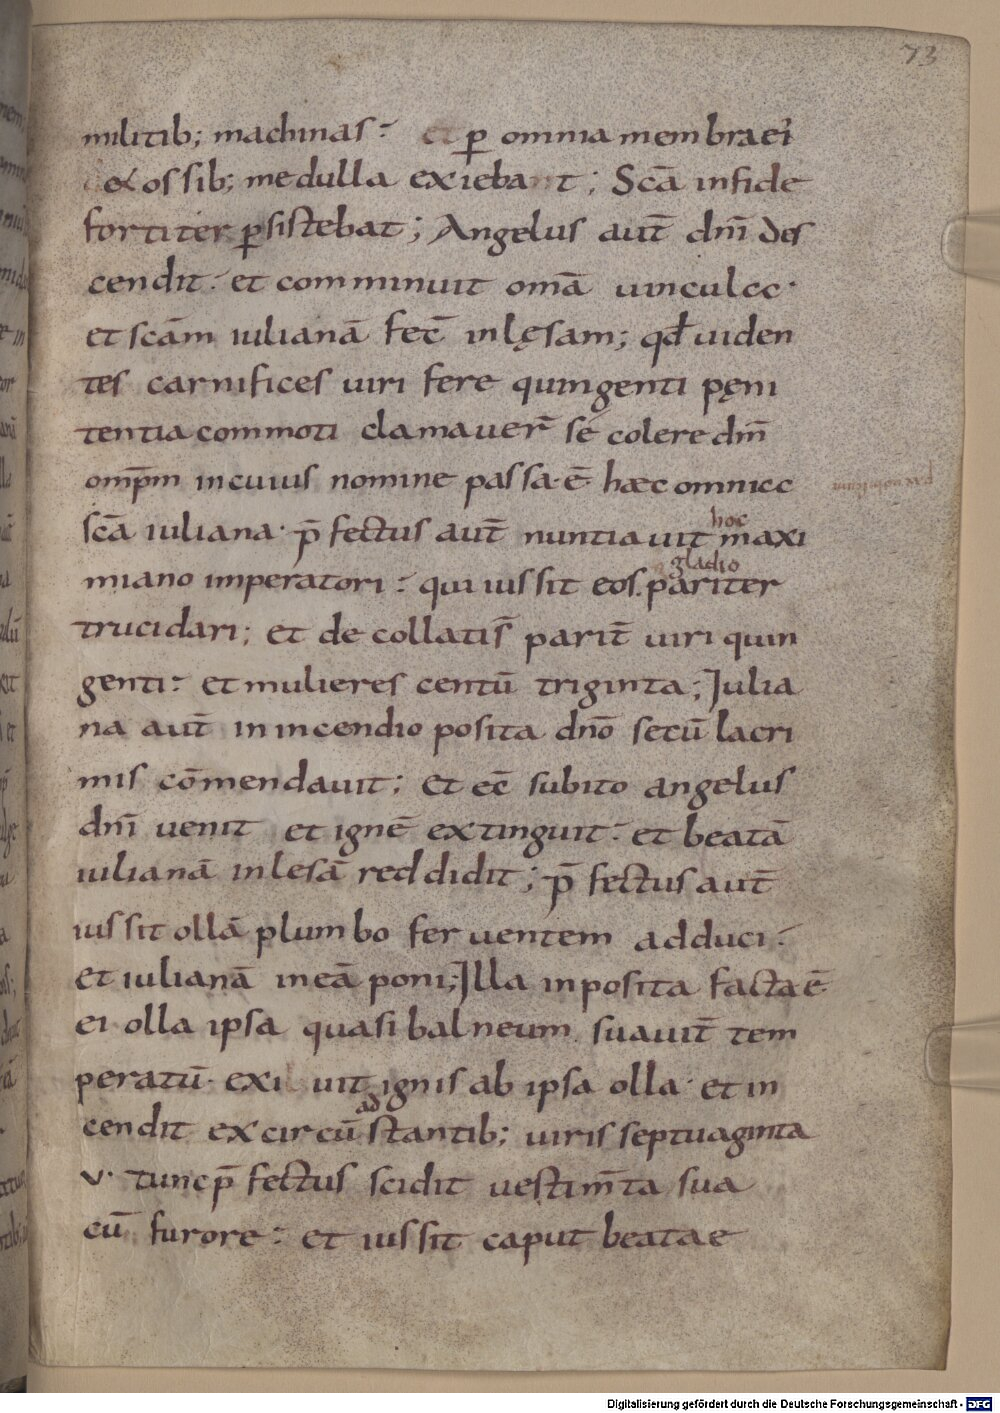 73
militib; machinas: et p̱ omnia membra ei
ex ossib; medulla exiebat; Scā in fide
fortiter p̱sistebat; Angelus aut̄ dnī des
cendit: et comminuit omā uincula·
et scām iulianā fec̄ inlęsam; qđ uiden
tes carnifices uiri fere quingenti pęni
tentia commoti clamauer̄ se colere dm̄
omp̄m in cuius nomine passa·ē haec omnia
scā iuliana· p̄fectus aut̄ nuntiauit hoc maxi
miano imperatori: qui iussit eos. gladio pariter
trucidari; et decollatis̄ parit̄ uiri quin
genti: et mulieres centū triginta; Iulia
na aut̄ in incendio posita dnō se tū lacri
mis cōmendauit; Et ec̄ subito angelus
dnī uenit et ignē extinguit: et beatā
iulianā inlesā reddidit; p̄fectus aut̄
iussit ollā plumbo feruentem adduci:
et iulianā in eā poni; Illa inposita facta ē
ei olla ipsa quasi balneum suauit̄ tem
peratū· exiuit ignis ab ipsa olla· et in
cendit ex circū adstantib; uiris septuaginta
v· tunc p̄fectus scidit uestim̄ta sua
cū furore: et iussit caput beatae
Digitalisierung gefördert durch die Deutsche Forschungsgemeinschaft - DFG